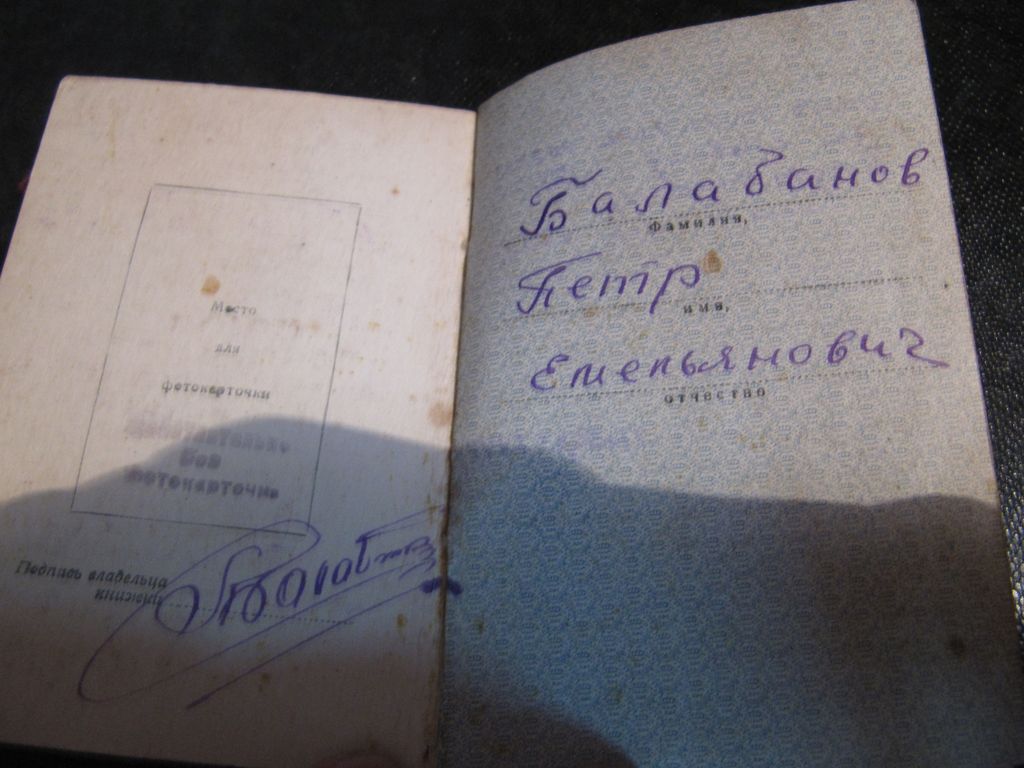 Место
для
фотокарточки
Действительно
без
фотокарточки
Подпись владельца
книжки
Балабанов
Фамилия,
Петр
имя,
Емельянович
отчество